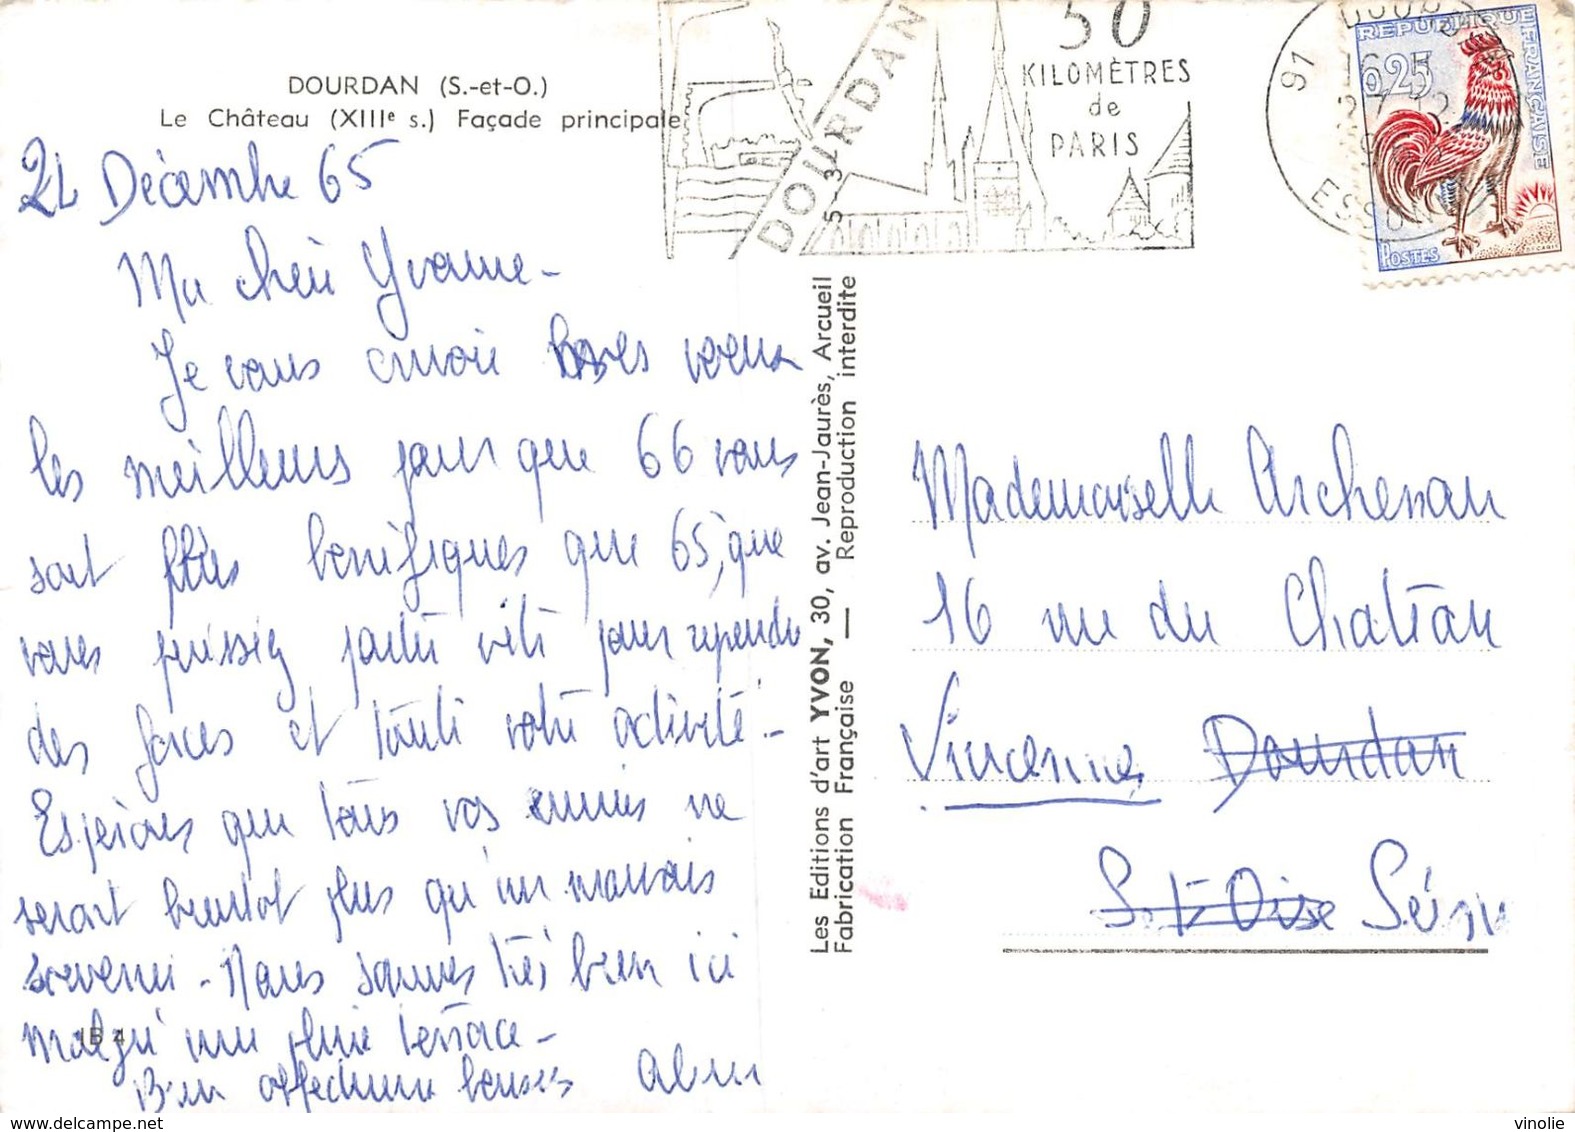 DOURDAN (S.-et-O.)
Le Château (XIIIe s.) Façade principale
DOURDAN
50
KILOMÈTRES
de
PARIS
91
ESSONNE
REPUBLIQUE FRANÇAISE
0,25
POSTES
Décembre 65
Ma chère Yvonne -
Je vous envoie nos voeux
les meilleurs pour que 66 vous
soit plus bénéfiques que 65, que
vous puissiez partir vite pour reprendre
des forces et toute votre activité -
Espérons que tous vos ennuis ne
seront bientôt plus qu'un mauvais
souvenir - Nous sommes très bien ici
malgré une pluie tenace -
Bien affectueux baisers
IB 4
Les Editions d'art YVON, 30, av. Jean-Jaurès, Arcueil
Fabrication Française — Reproduction interdite
Mademoiselle
16 rue du Château
Vincennes Dourdan
S. et Oise Seine
vinolie